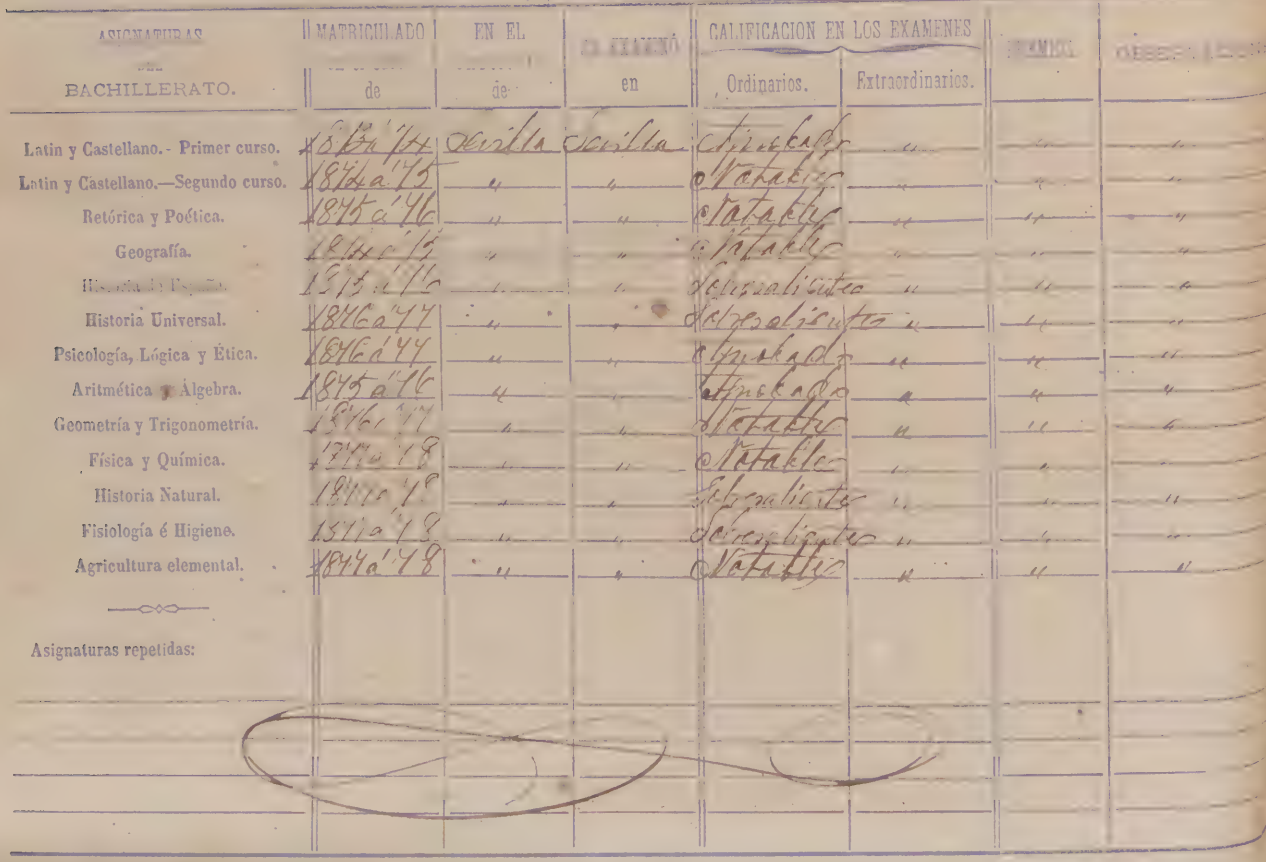 ASIGNATURAS MATRICULADO EN EL SE EXAMINÓ CALIFICACION EN LOS EXAMENES
BACHILLERATO. de de en Ordinarios. Extraordinarios.
Latin y Castellano.- Primer curso. 1873 á 74 Sevilla Sevilla Aprobado " " "
Latin y Castellano.—Segundo curso. 1874 á 75 " " Notable " " "
Retórica y Poética. 1875 á 76 " " Notable " " "
Geografía. 1874 á 75 " " Notable " " "
Historia de España. 1875 á 76 " " Sobresaliente " " "
Historia Universal. 1876 á 77 " " Sobresaliente " " "
Psicología, Lógica y Ética. 1876 á 77 " " Aprobado " " "
Aritmética y Álgebra. 1875 á 76 " " Aprobado " " "
Geometría y Trigonometría. 1876 á 77 " " Notable " " "
Física y Química. 1877 á 78 " " Notable " " "
Historia Natural. 1877 á 78 " " Sobresaliente " " "
Fisiología é Higiene. 1877 á 78 " " Sobresaliente " " "
Agricultura elemental. 1877 á 78 " " Notable " " "
Asignaturas repetidas: